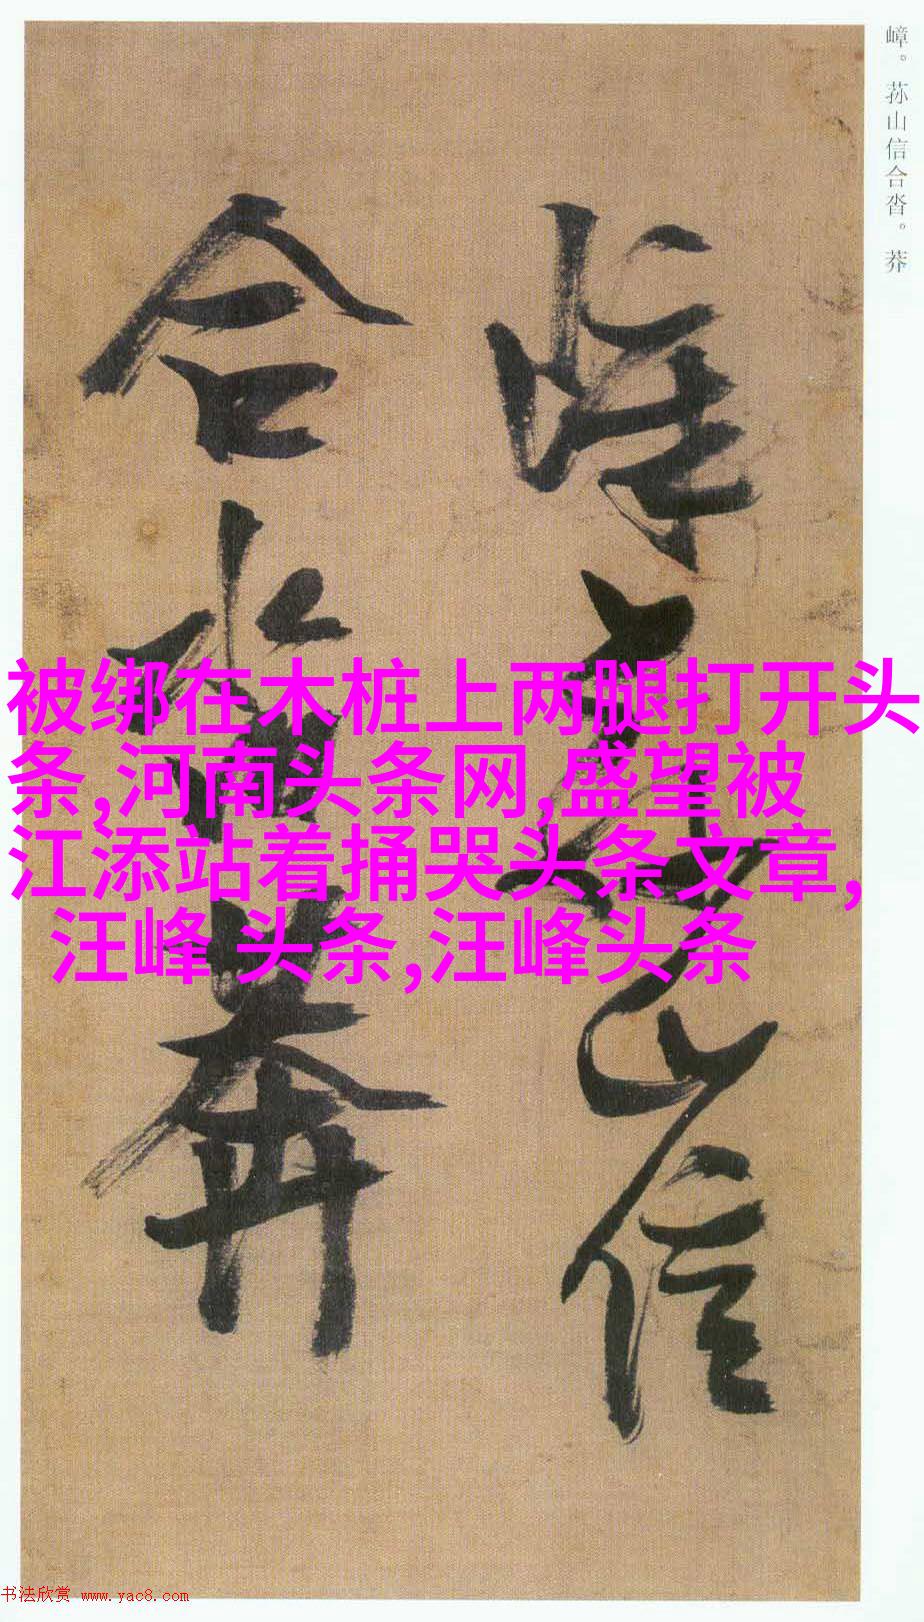 嶂。荪山信合沓。莽
嶂荪山信
合沓莽
被绑在木桩上两腿打开头
条,河南头条网,盛望被
江添站着捅哭头条文章,
汪峰 头条,汪峰头条
书法欣赏 www.yac8.com